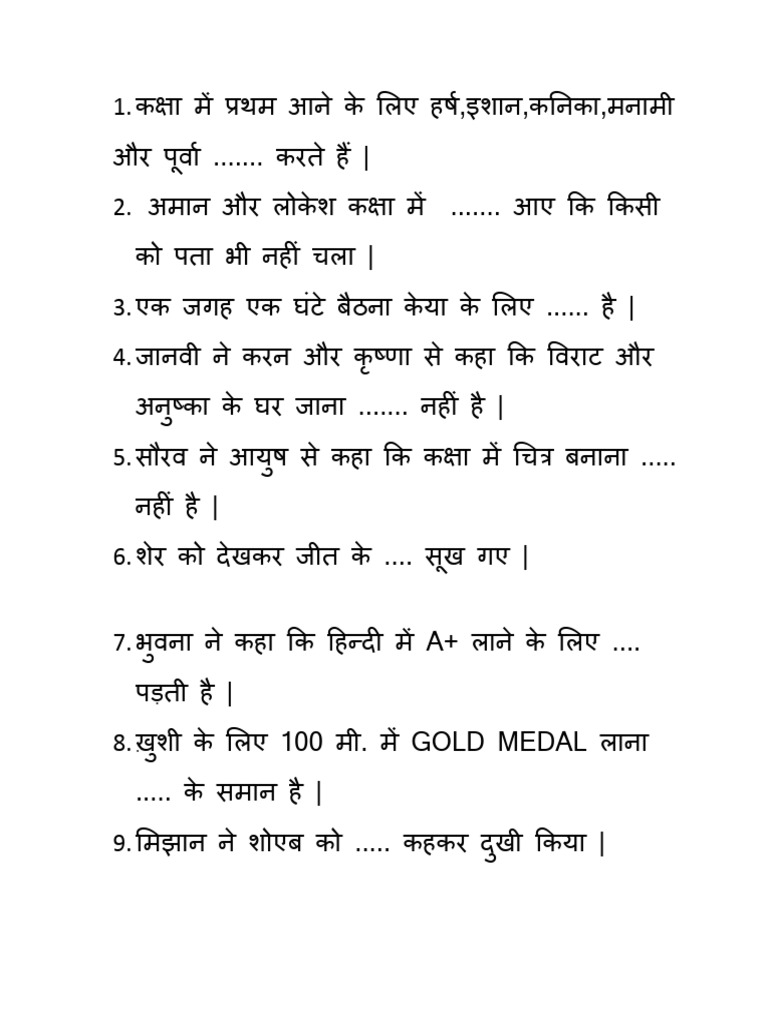 1.कक्षा में प्रथम आने के लिए हर्ष,इशान,कनिका,मनामी
और पूर्वा ....... करते हैं |
2. अमान और लोकेश कक्षा में ....... आए कि किसी
को पता भी नहीं चला |
3.एक जगह एक घंटे बैठना केया के लिए ...... है |
4.जानवी ने करन और कृष्णा से कहा कि विराट और
अनुष्का के घर जाना ....... नहीं है |
5.सौरव ने आयुष से कहा कि कक्षा में चित्र बनाना .....
नहीं है |
6.शेर को देखकर जीत के .... सूख गए |
7.भुवना ने कहा कि हिन्दी में A+ लाने के लिए ....
पड़ती है |
8.ख़ुशी के लिए 100 मी. में GOLD MEDAL लाना
..... के समान है |
9.मिझान ने शोएब को ..... कहकर दुखी किया |